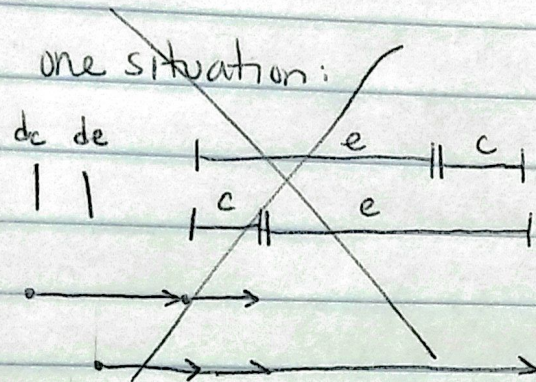 one situation:
dc de
e c
c e